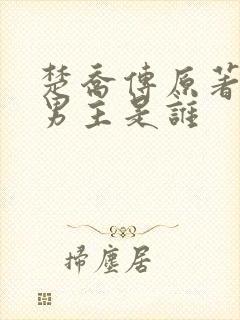 楚喬傳原著
男主是誰
掃塵居